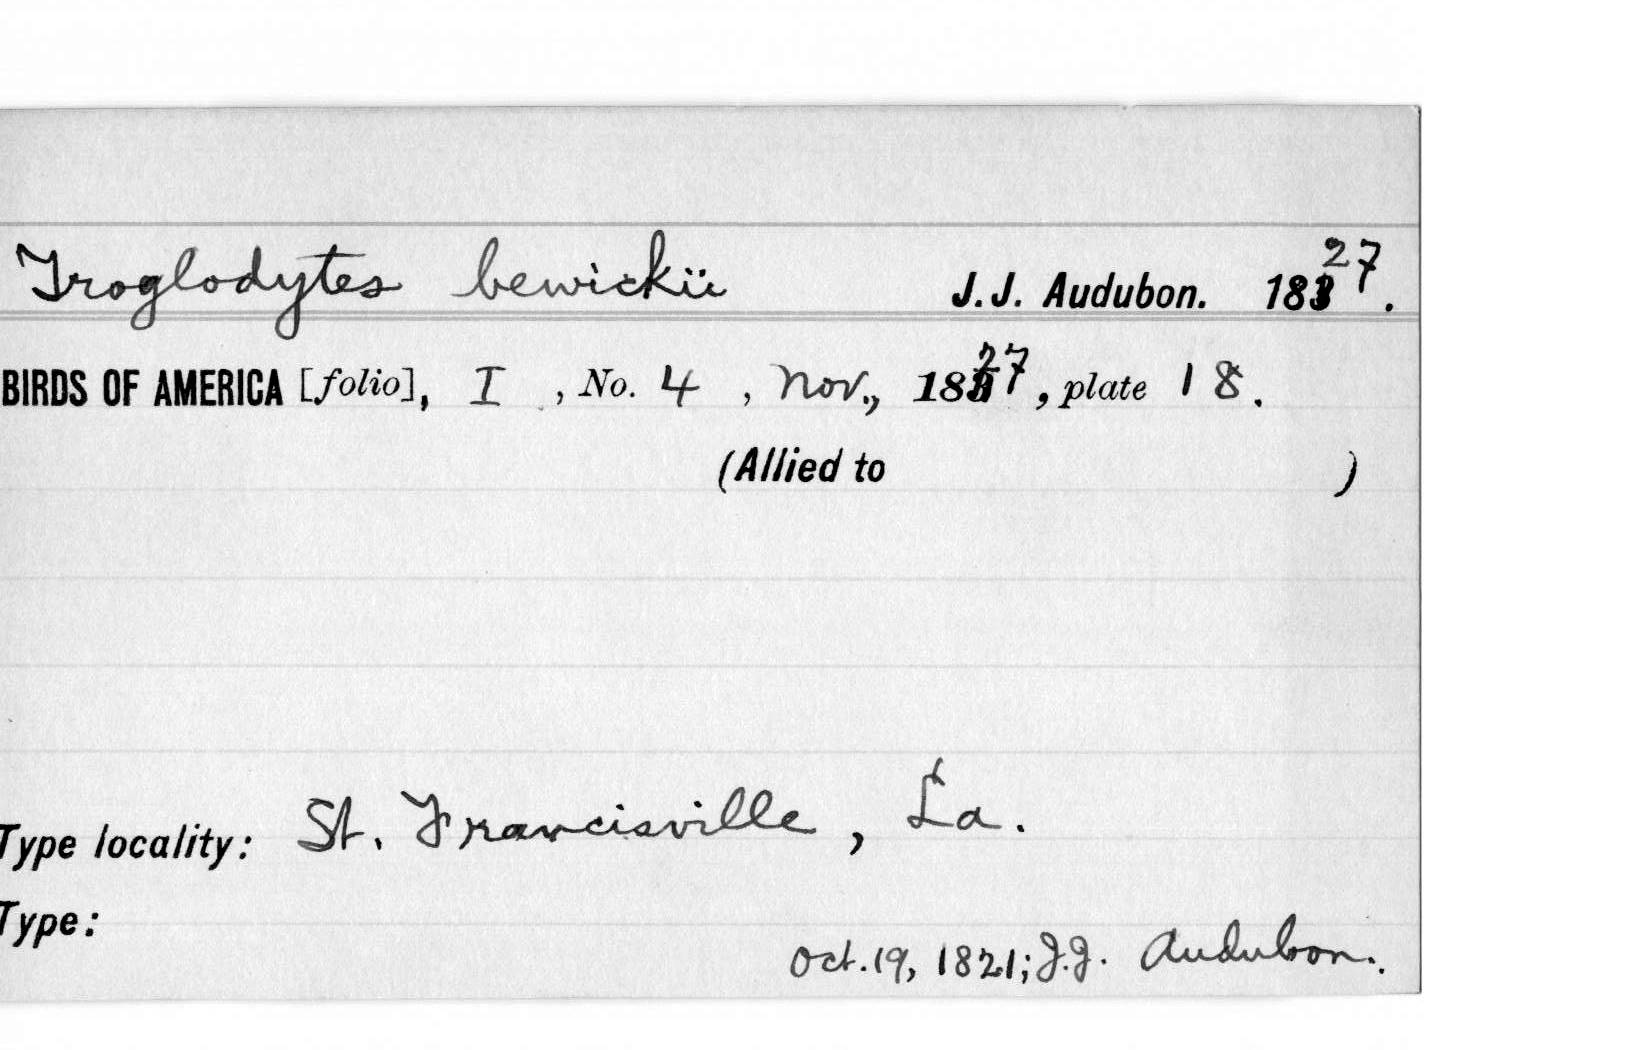 Troglodytes bewickii J. J. Audubon. 1827.
BIRDS OF AMERICA [folio], I , No. 4 , Nov., 1827, plate 18.
(Allied to )
Type locality: St. Francisville, La.
Type:
Oct. 19, 1821; J.J. Audubon.